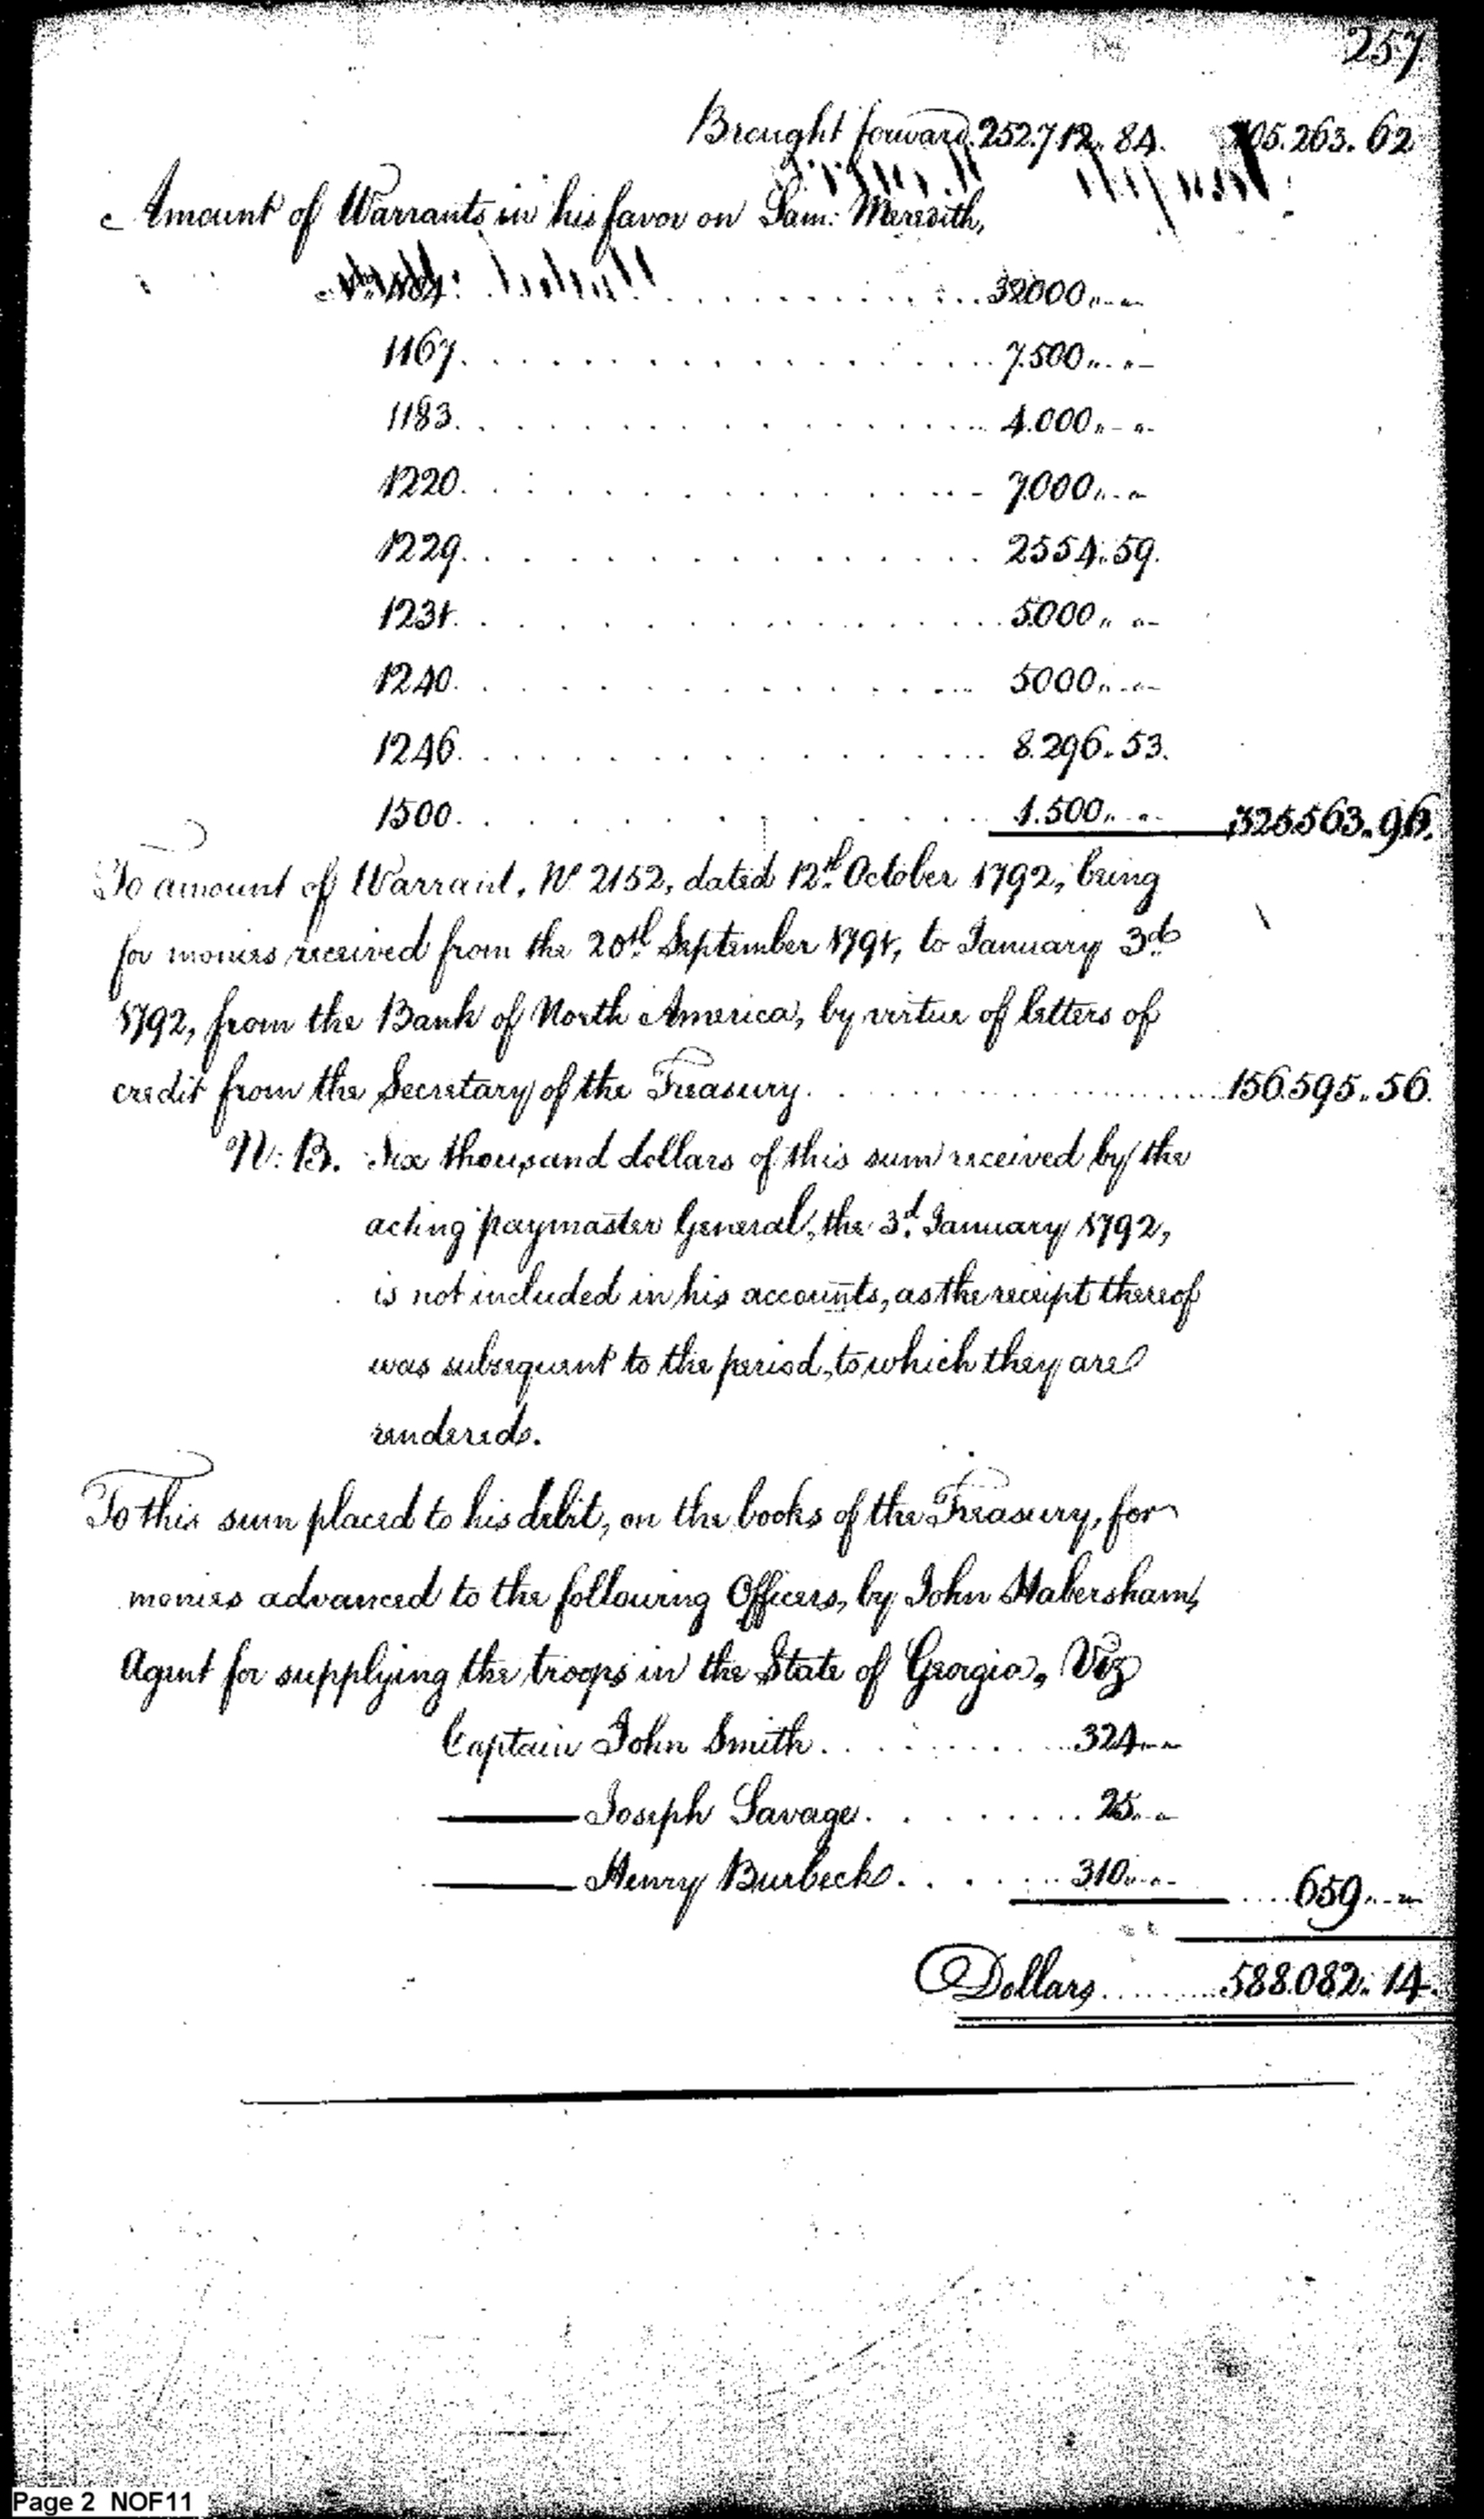 257
Brought forward. 252.712. 84. 105.263. 62
Amount of Warrants in his favor on Sam: Meredith,
No. . . . . . . . . . 32000 " - "
1167. . . . . . . . . . 7.500 " - "
1183. . . . . . . . . . 4.000 " - "
1220. . . . . . . . . . 7000 " - "
1229. . . . . . . . . . 2554. 59.
1231. . . . . . . . . . 5000 " "
1240. . . . . . . . . . 5000 " - "
1246. . . . . . . . . . 8.296. 53.
1500. . . . . . . . . . 1.500 " - " 325.563. 96.
To amount of Warrant, No 2152, dated 12th October 1792, being
for monies received from the 20th September 1791, to January 3d
1792, from the Bank of North America, by virtue of letters of
credit from the Secretary of the Treasury. . . . . . . . . 156.595. 56.
N: B. Six thousand dollars of this sum received by the
acting paymaster General, the 3d January 1792,
is not included in his accounts, as the receipt thereof
was subsequent to the period, to which they are
rendered.
To this sum placed to his debit, on the books of the Treasury, for
monies advanced to the following Officers, by John Habersham,
Agent for supplying the troops in the State of Georgia, Viz
Captain John Smith. . . . . . . . 324 " - "
—— Joseph Savage. . . . . . . . 25 " - "
—— Henry Burbeck. . . . . . . . 310 " - " . . . . 659 " - "
Dollars. . . . . . . . 588.082. 14.
Page 2 NOF11